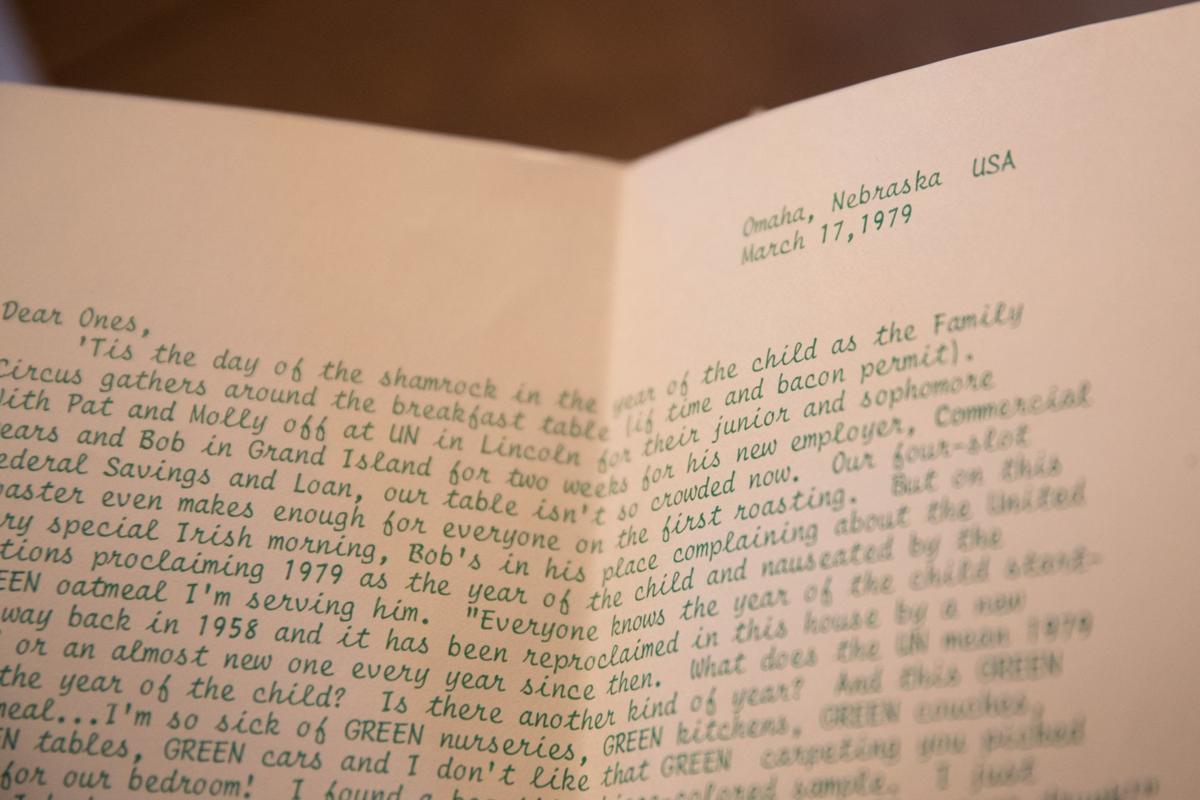 Omaha, Nebraska USA
March 17, 1979
Dear Ones,
'Tis the day of the shamrock in the year of the child as the Family
Circus gathers around the breakfast table (if time and bacon permit).
With Pat and Molly off at UN in Lincoln for their junior and sophomore
ears and Bob in Grand Island for two weeks for his new employer, Commercial
ederal Savings and Loan, our table isn't so crowded now. Our four-slot
oaster even makes enough for everyone on the first roasting. But on this
ry special Irish morning, Bob's in his place complaining about the United
tions proclaiming 1979 as the year of the child and nauseated by the
EEN oatmeal I'm serving him. "Everyone knows the year of the child start-
way back in 1958 and it has been reproclaimed in this house by a new
or an almost new one every year since then. What does the UN mean 1979
the year of the child? Is there another kind of year? And this GREEN
meal...I'm so sick of GREEN nurseries, GREEN kitchens, GREEN couches,
EN tables, GREEN cars and I don't like that GREEN carpeting you picked
for our bedroom! I found a colored sample. I just